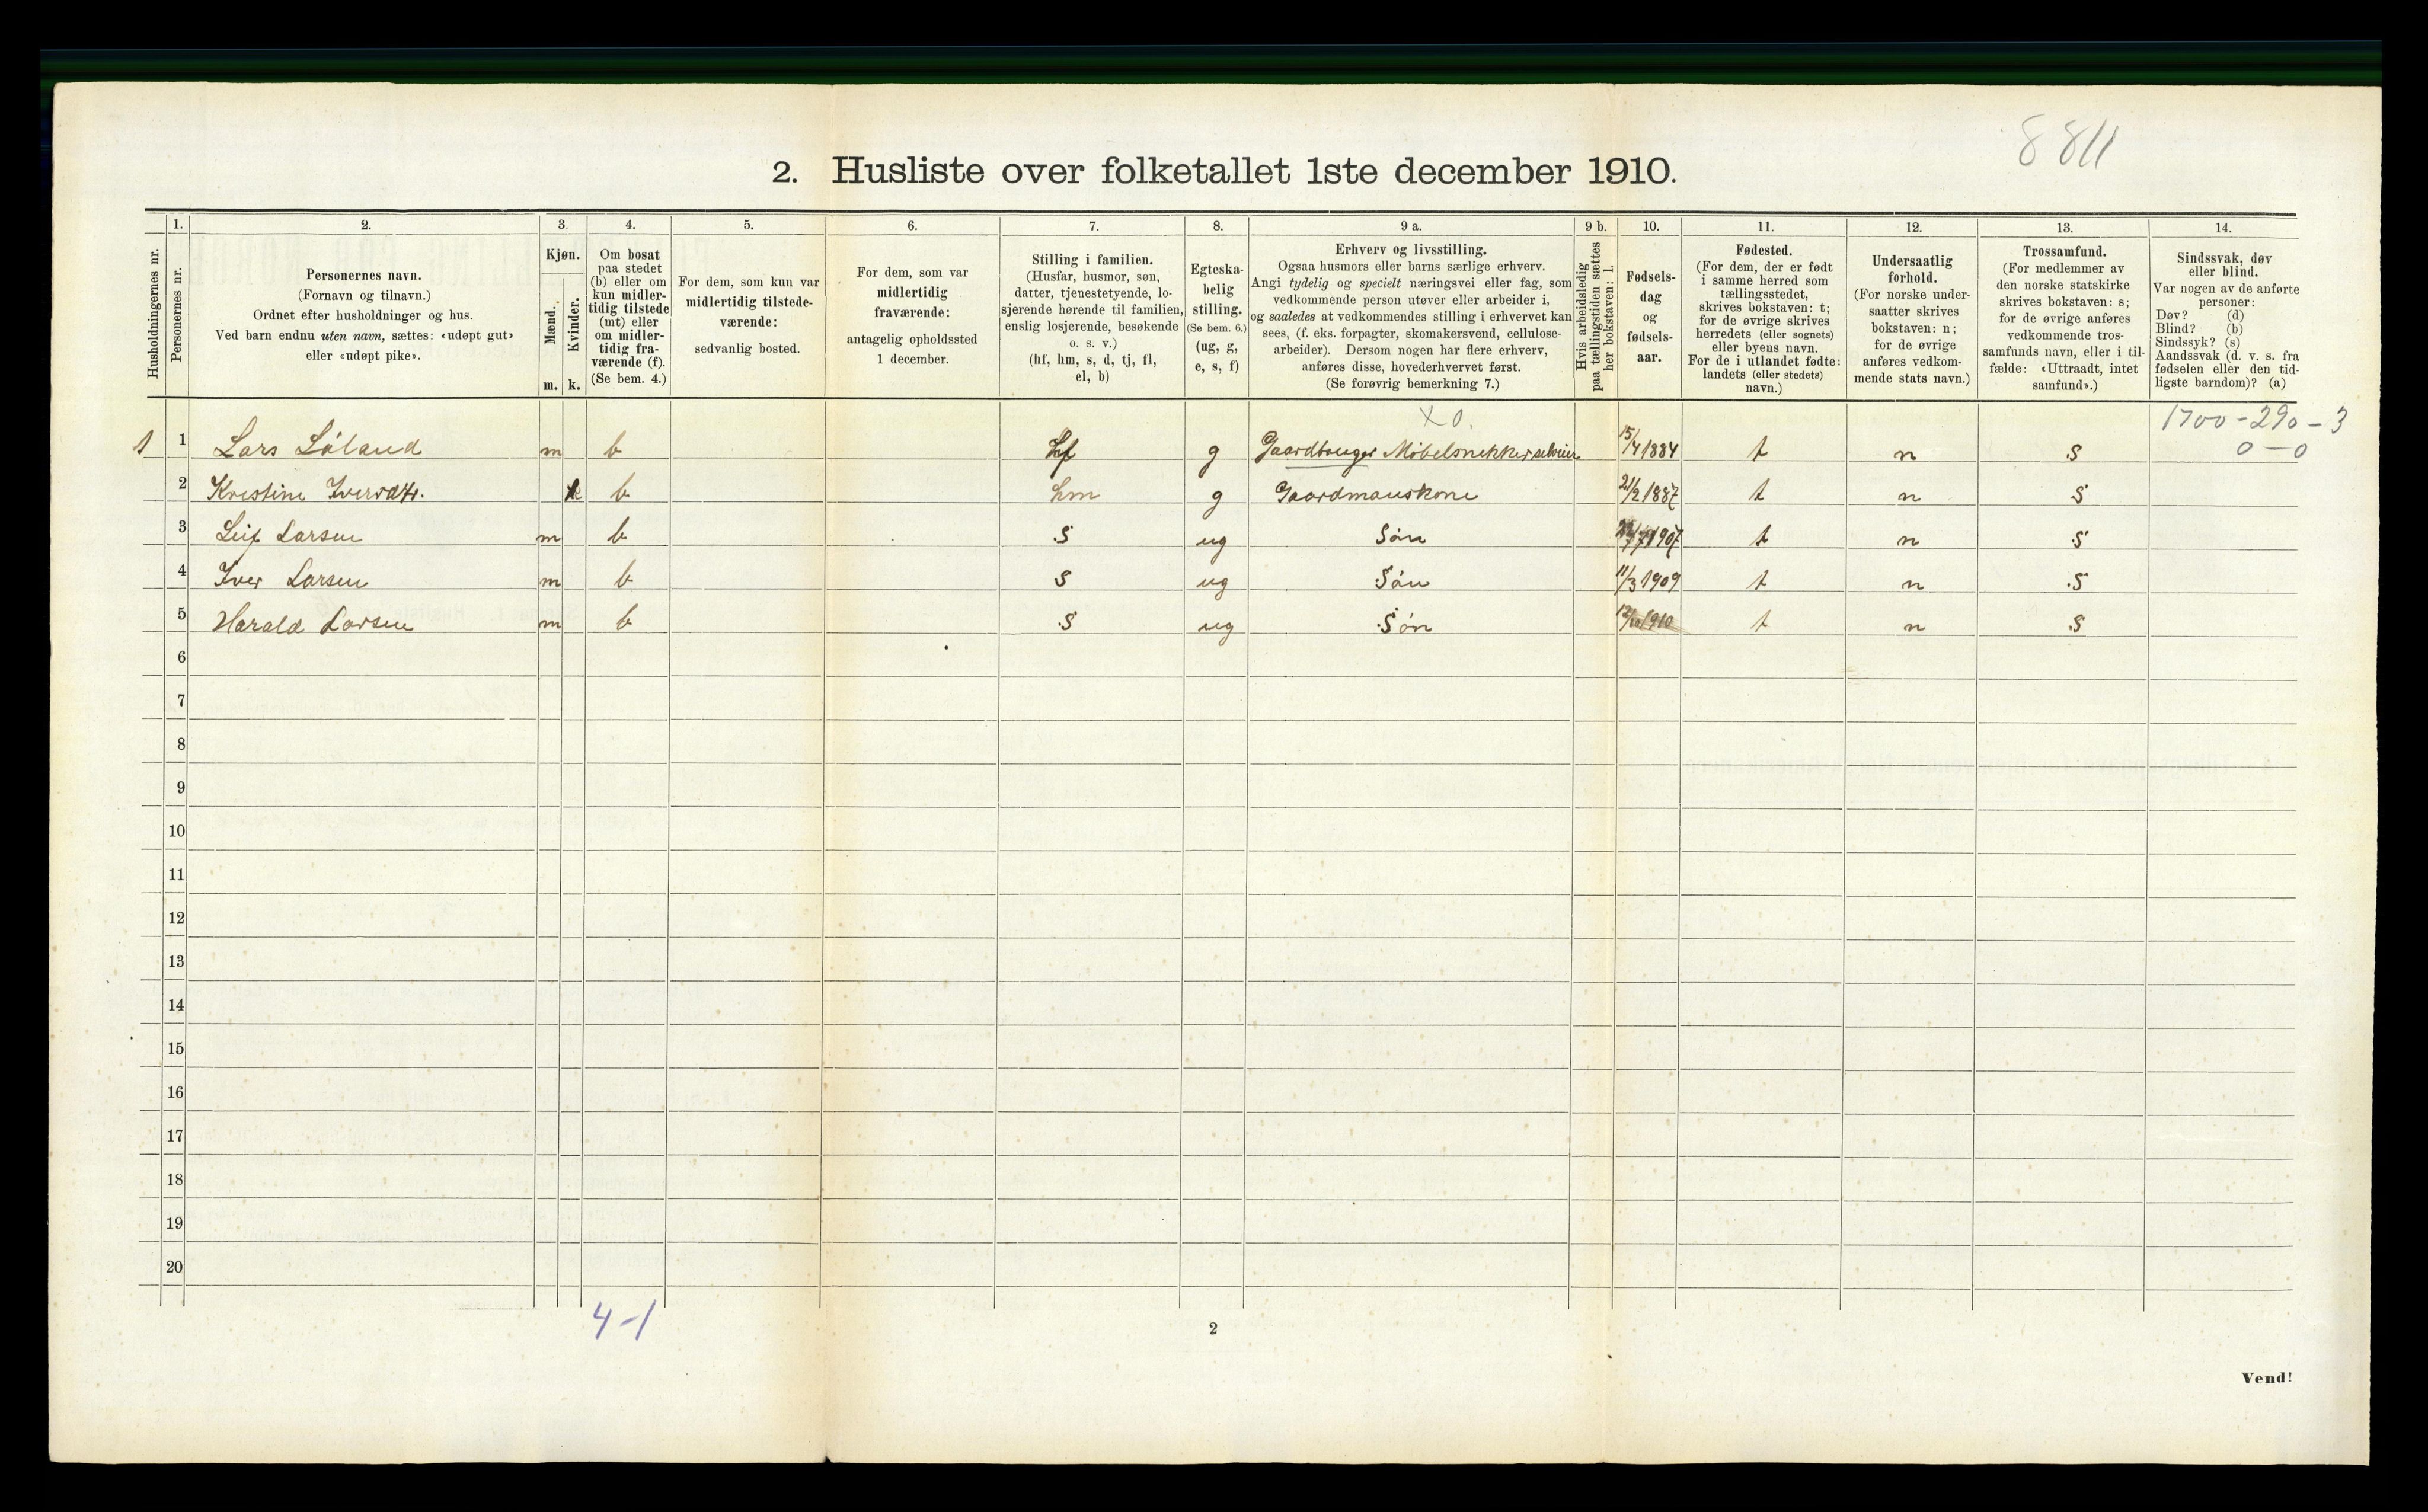 8811
2. Husliste over folketallet 1ste december 1910.
Husholdningernes nr.
1.
Personernes nr.
2.
Personernes navn.
(Fornavn og tilnavn.)
Ordnet efter husholdninger og hus.
Ved barn endnu uten navn, sættes: «udøpt gut»
eller «udøpt pike».
3.
Kjøn.
Mænd.
Kvinder.
m. k.
4.
Om bosat
paa stedet
(b) eller om
kun midler-
tidig tilstede
(mt) eller
om midler-
tidig fra-
værende (f).
(Se bem. 4.)
5.
For dem, som kun var
midlertidig tilstede-
værende:
sedvanlig bosted.
6.
For dem, som var
midlertidig
fraværende:
antagelig opholdssted
1 december.
7.
Stilling i familien.
(Husfar, husmor, søn,
datter, tjenestetyende, lo-
sjerende hørende til familien,
enslig losjerende, besøkende
o. s. v.)
(hf, hm, s, d, tj, fl,
el, b)
8.
Egteska-
belig
stilling.
(Se bem. 6.)
(ug, g,
e, s, f)
9 a.
Erhverv og livsstilling.
Ogsaa husmors eller barns særlige erhverv.
Angi tydelig og specielt næringsvei eller fag, som
vedkommende person utøver eller arbeider i,
og saaledes at vedkommendes stilling i erhvervet kan
sees, (f. eks. forpagter, skomakersvend, cellulose-
arbeider). Dersom nogen har flere erhverv,
anføres disse, hovederhvervet først.
(Se forøvrig bemerkning 7.)
9 b.
Hvis arbeidsledig
paa tællingstiden sættes
her bokstaven: l.
10.
Fødsels-
dag
og
fødsels-
aar.
11.
Fødested.
(For dem, der er født
i samme herred som
tællingsstedet,
skrives bokstaven: t;
for de øvrige skrives
herredets (eller sognets)
eller byens navn.
For de i utlandet fødte:
landets (eller stedets)
navn.)
12.
Undersaatlig
forhold.
(For norske under-
saatter skrives
bokstaven: n;
for de øvrige
anføres vedkom-
mende stats navn.)
13.
Trossamfund.
(For medlemmer av
den norske statskirke
skrives bokstaven: s;
for de øvrige anføres
vedkommende tros-
samfunds navn, eller i til-
fælde: «Uttraadt, intet
samfund».)
14.
Sindssvak, døv
eller blind.
Var nogen av de anførte
personer:
Døv? (d)
Blind? (b)
Sindssyk? (s)
Aandssvak (d. v. s. fra
fødselen eller den tid-
ligste barndom)? (a)
x 0.
1700-290-3
0-0
1 1 Lars Løland m b hf g Gaardbruger Møbelsnekker selveier 15/4 1884 t n s
2 Kristine Iversdtr. k b hm g Gaardmanskone 21/2 1887 t n s
3 Leif Larsen m b s ug Søn 1907 t n s
4 Iver Larsen m b s ug Søn 11/3 1909 t n s
5 Harald Larsen m b s ug Søn 1910 t n s
6
7
8
9
10
11
12
13
14
15
16
17
18
19
20
4-1
2
Vend!